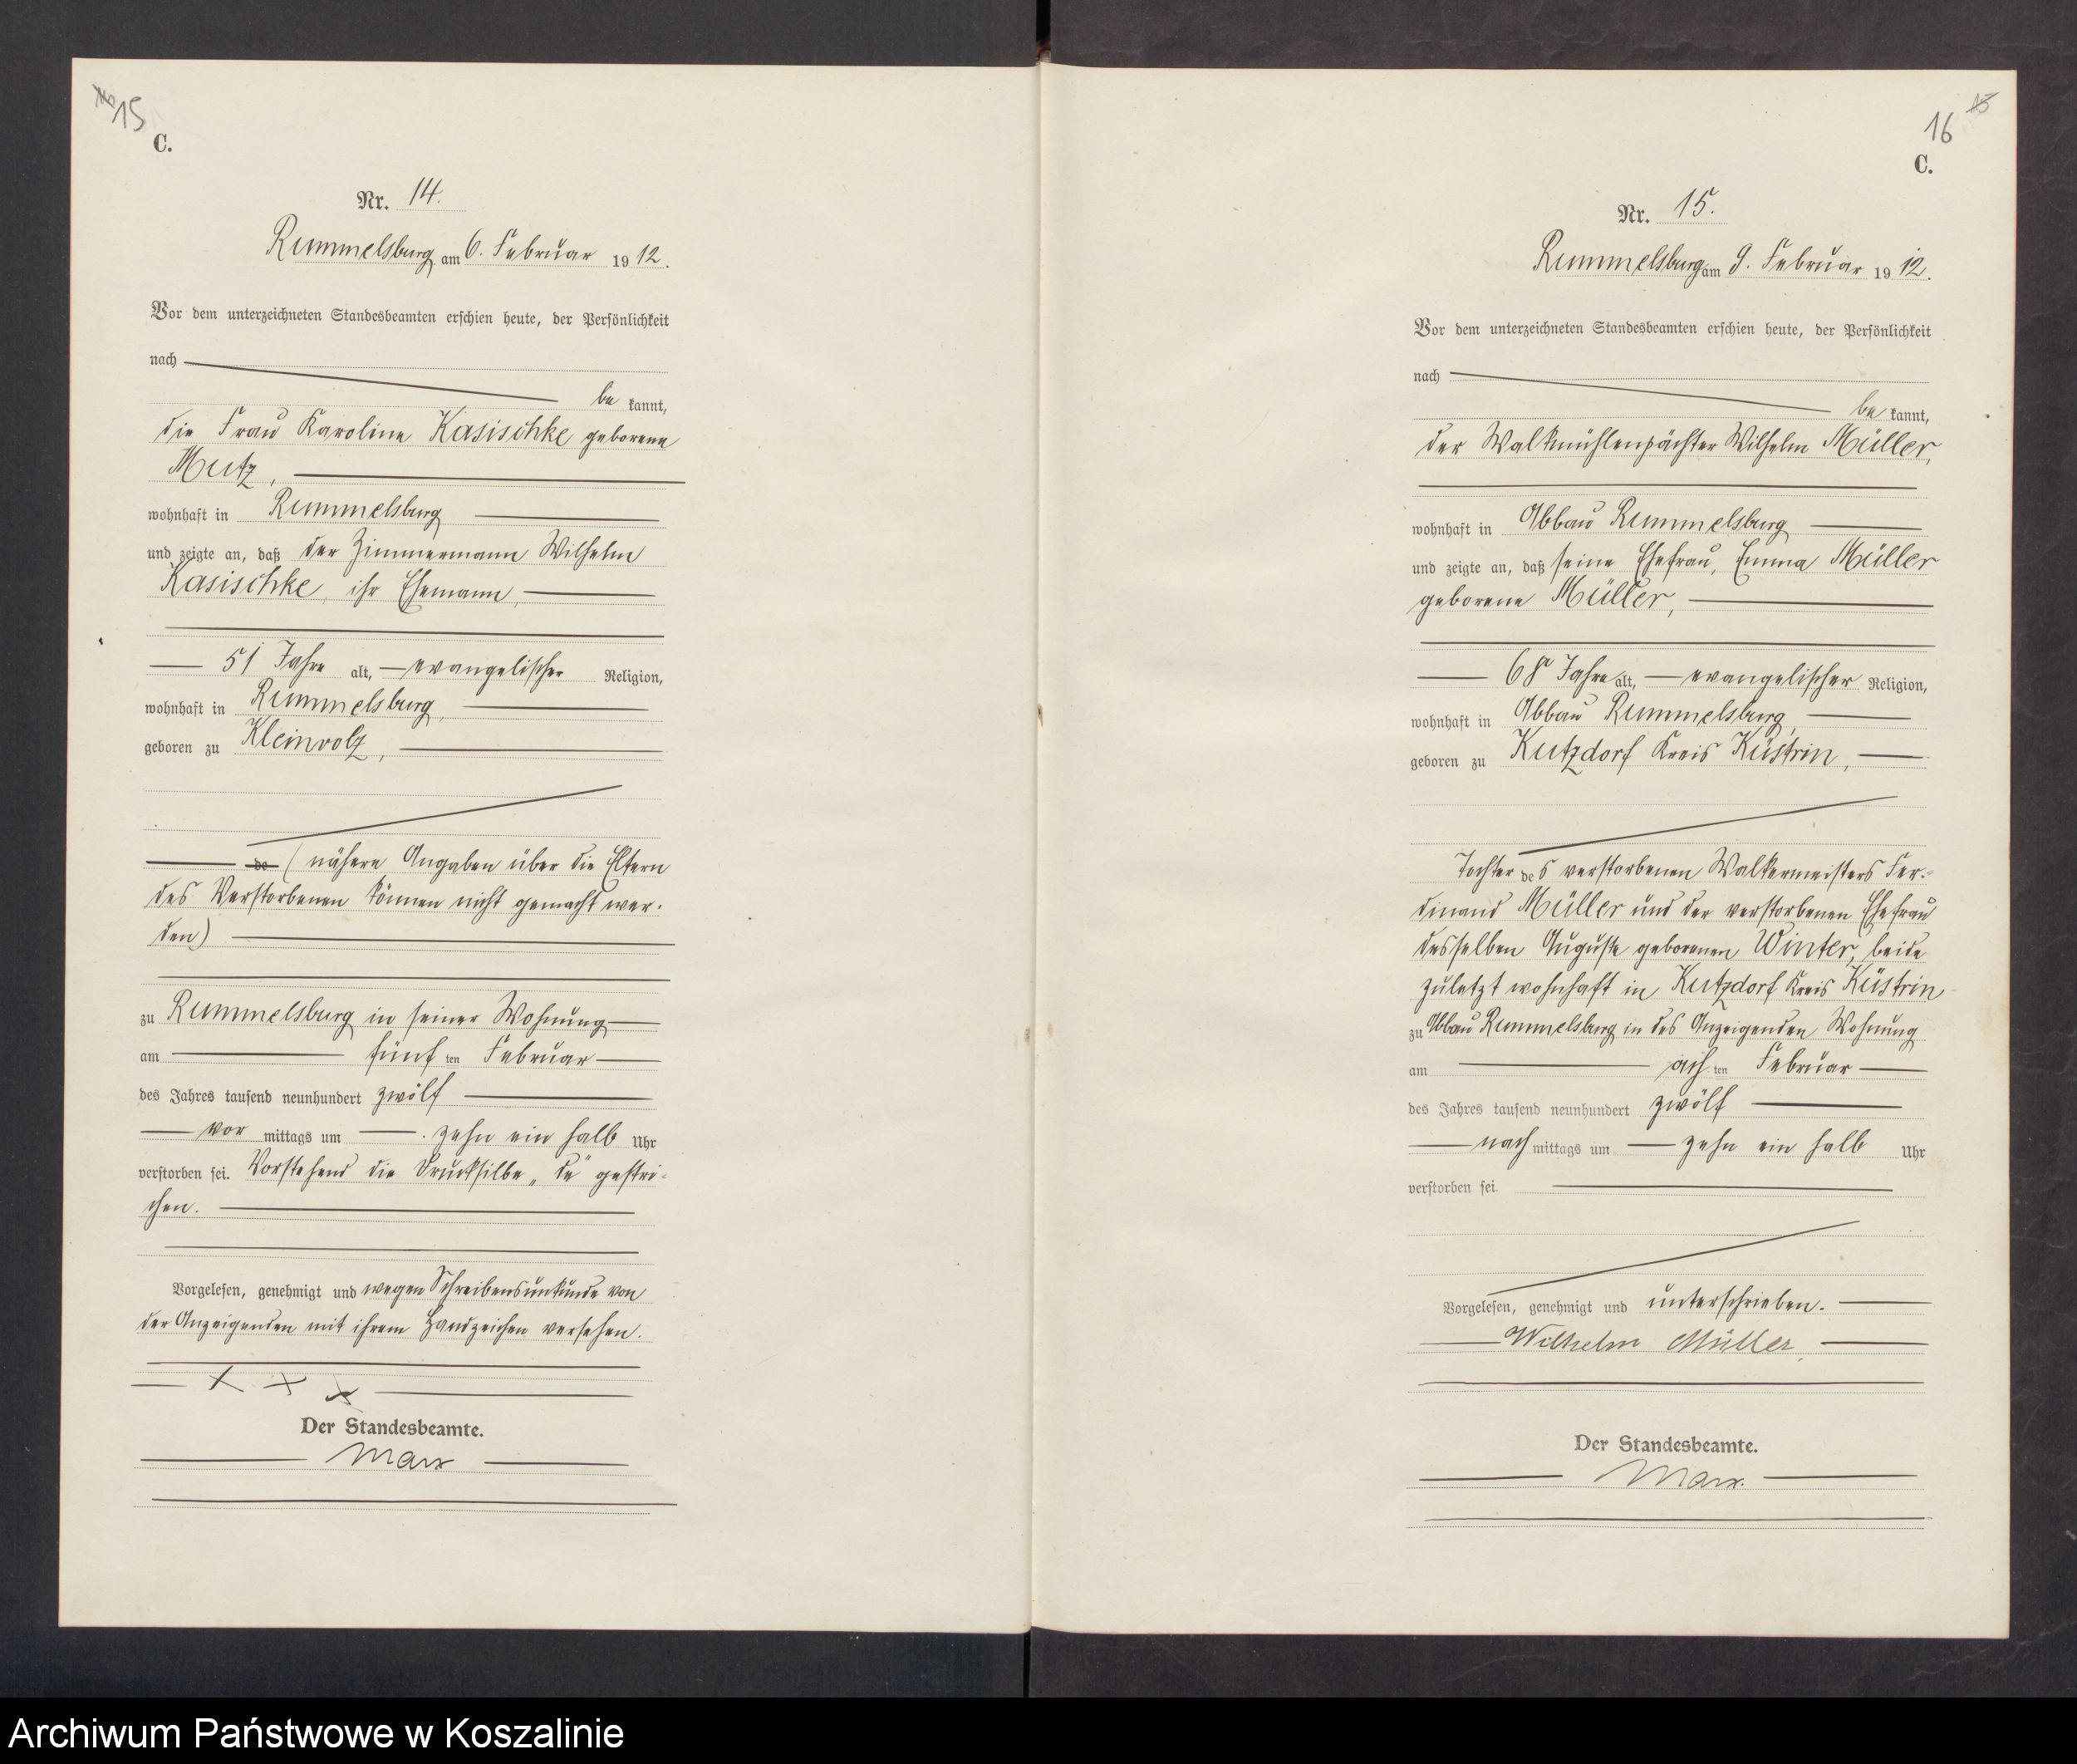 15
C.
Nr. 14.
Rummelsburg am 6. Februar 1912.
Vor dem unterzeichneten Standesbeamten erschien heute, der Persönlichkeit
nach
be kannt,
die Frau Karoline Kasischke geborene
Mutz,
wohnhaft in Rummelsburg
und zeigte an, daß der Zimmermann Wilhelm
Kasischke, ihr Ehemann,
51 Jahre alt, evangelischer Religion,
wohnhaft in Rummelsburg,
geboren zu Kleinvolz,
de (nähere Angaben über die Eltern
des Verstorbenen können nicht gemacht wer-
den)
zu Rummelsburg in seiner Wohnung
am fünf ten Februar
des Jahres tausend neunhundert zwölf
vor mittags um zehn ein halb Uhr
verstorben sei. Vorstehend die Drucksilbe „de" gestri-
chen.
Vorgelesen, genehmigt und wegen Schreibensunkunde von
der Anzeigenden mit ihrem Handzeichen versehen.
x x x
Der Standesbeamte.
Marx
15
16
C.
Nr. 15.
Rummelsburg am 9. Februar 1912.
Vor dem unterzeichneten Standesbeamten erschien heute, der Persönlichkeit
nach
be kannt,
der Walkmühlenpächter Wilhelm Müller,
wohnhaft in Abbau Rummelsburg
und zeigte an, daß seine Ehefrau, Emma Müller
geborene Müller,
68 Jahre alt, evangelischer Religion,
wohnhaft in Abbau Rummelsburg,
geboren zu Kutzdorf Kreis Küstrin,
Tochter des verstorbenen Walkermeisters Fer-
dinand Müller und der verstorbenen Ehefrau
desselben Auguste geborenen Winter, beide
zuletzt wohnhaft in Kutzdorf Kreis Küstrin
zu Abbau Rummelsburg in des Anzeigenden Wohnung
am ach ten Februar
des Jahres tausend neunhundert zwölf
nach mittags um zehn ein halb Uhr
verstorben sei.
Vorgelesen, genehmigt und unterschrieben.
Wilhelm Müller,
Der Standesbeamte.
Marx.
Archiwum Państwowe w Koszalinie